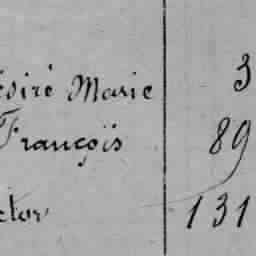 ésiré Marie 3
François 89
ctor 131